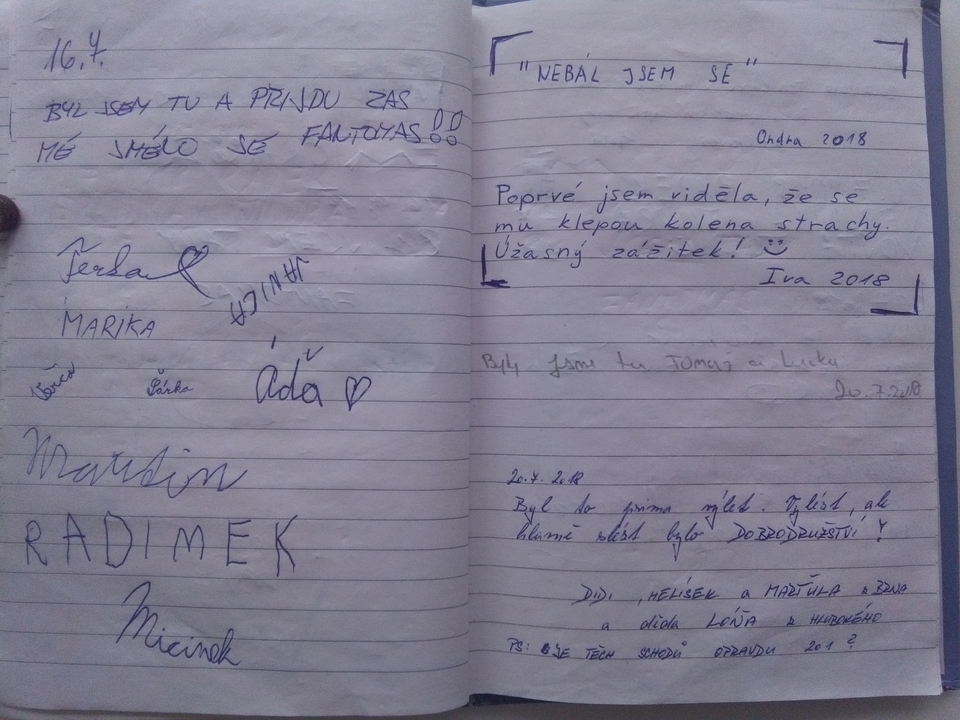 16.7.
BYL JSEM TU A PŘIJDU ZAS
MÉ JMÉNO SE FANTOMAS!!
Terka
JANIČA
MARIKA
Šárka
Áďa
Martin
RADIMEK
Micinek
"NEBÁL JSEM SE"
Ondra 2018
Poprvé jsem viděla, že se
mu klepou kolena strachy.
Úžasný zážitek!
Iva 2018
Byly jsme tu Tomáš a Lucka
20.7.2018
20.7. 2018
Byl to prima výlet. Vylézt, ale
hlavně slézt bylo DOBRODRUŽSTVÍ!
DIDI, MELÍSEK a MARŤULA z BRNA
a děda LÓŇA z HLUBOKÉHO
PS: JE TĚCH SCHODŮ OPRAVDU 201?